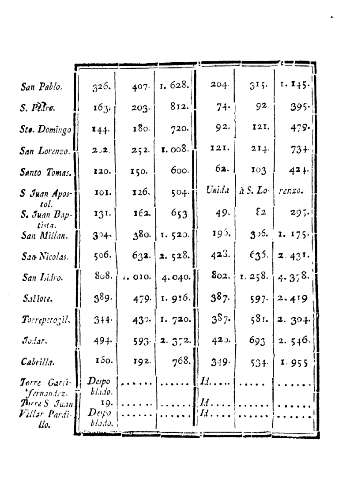 San Pablo. 326. 407. 1. 628. 204. 315. 1. 145.
S. Pedro. 163. 203. 812. 74. 92 395.
Sto. Domingo 144. 180. 720. 92. 121. 479.
San Lorenzo. 202. 252. 1. 008. 121. 214. 734.
Santo Tomas. 120. 150. 600. 62. 103 424.
S Juan Apos- 101. 126. 504. Unida à S. Lo- renzo.
tol.
S. Juan Bap- 131. 162. 653 49. 82 297.
tista.
San Millan. 304. 380. 1. 520. 306. 1. 175.
San Nicolas. 506. 632. 2. 528. 428. 636. 2. 431.
San Isidro. 808. 1. 010. 4. 040. 802. 1. 258. 4. 378.
Sallote. 389. 479. 1. 916. 387. 597. 2. 419
Torreperogil. 344. 430. 1. 720. 387. 581. 2. 304.
Jodar. 494. 593. 2. 372. 420. 693 2. 546.
Cabrilla. 160. 192. 768. 349. 534. 1 955
Torre Garci- Despo ...... ...... Id..... ...... ......
fernandez. blado.
Torre S Juan 19. ...... ...... Id..... ...... ......
Villar Pardi- Despo ...... ...... Id..... ...... ......
llo. blado.